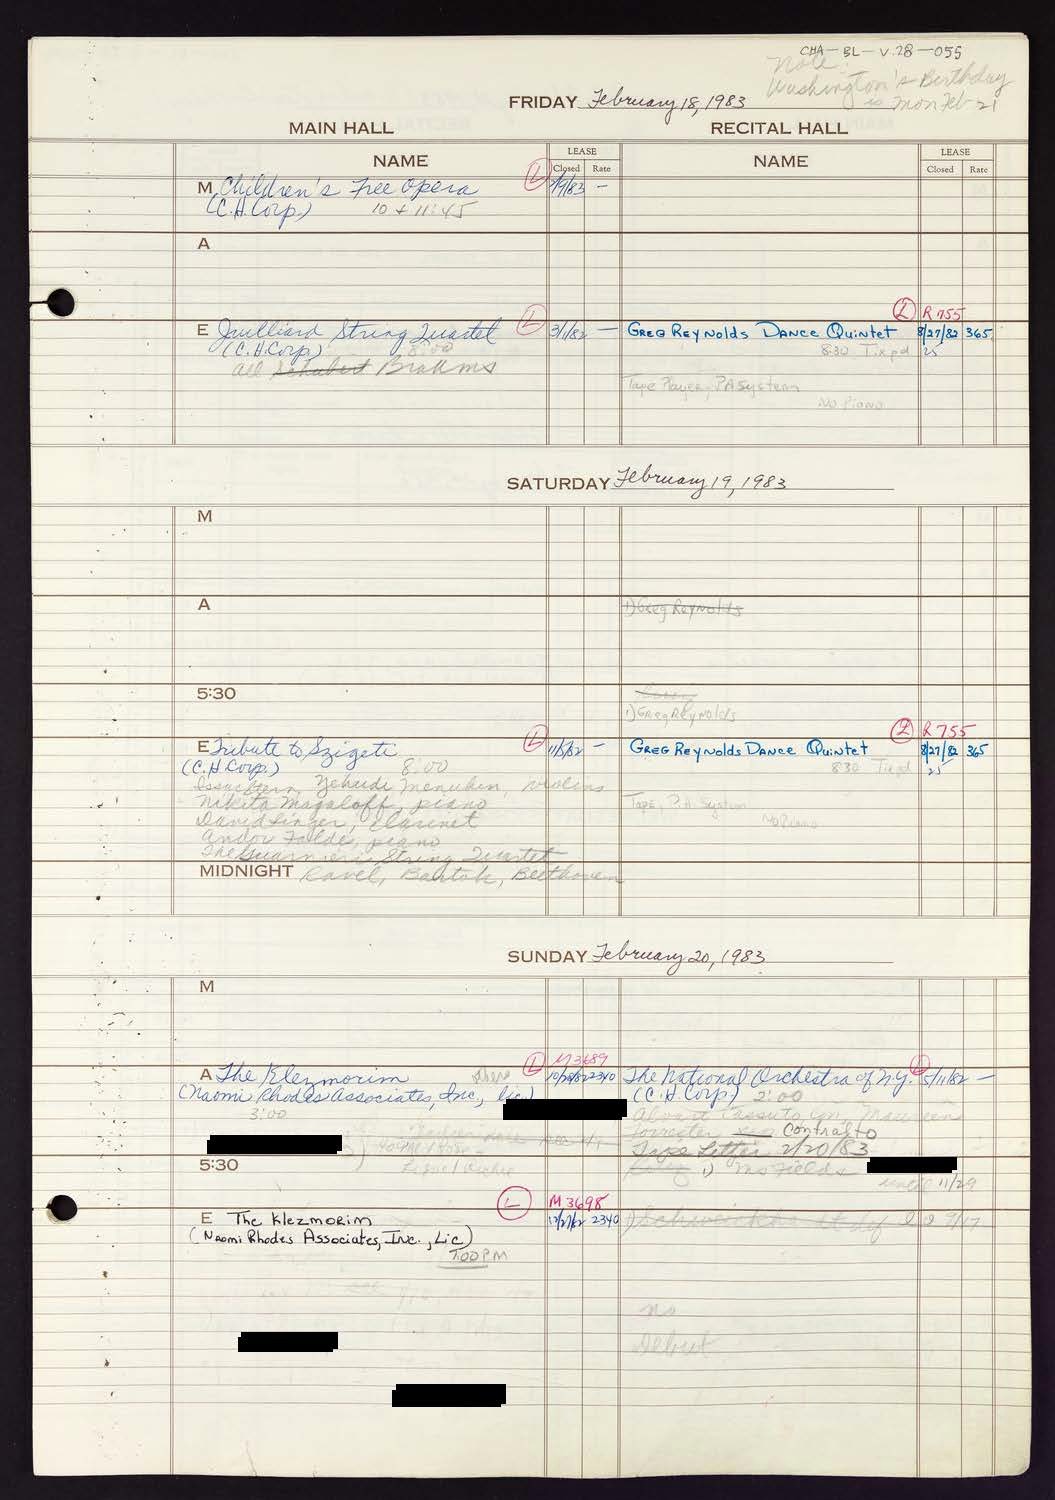 CHA-BL-V.28-055
Note:
Washington's Birthday
is Mon Feb 21
FRIDAY February 18, 1983
MAIN HALL
RECITAL HALL
NAME
LEASE
Closed Rate
NAME
LEASE
Closed Rate
M Children's Free Opera L 1/7/83 –
(C.H.Corp.) 10 + 11:45
A
L R 755
E Juilliard String Quartet L 3/1/82 –
(C.H.Corp) 8:00
all Schubert Brahms
Greg Reynolds Dance Quintet 8/27/82 365
8:30 Tix pd 25
Tape Player, PA System
No Piano
SATURDAY February 19, 1983
M
A
1) Greg Reynolds
5:30
1) Greg Reynolds
L R 755
E Tribute to Szigeti L 11/5/82 –
(C.H.Corp.) 8:00
Isaac Stern, Yehudi Menuhin, violins
Nikita Magaloff, piano
David Singer, clarinet
Andor Foldes, piano
The Guarnieri String Quartet
Greg Reynolds Dance Quintet 8/27/82 365
8:30 Tix pd 25
Tape, PA System
No Piano
MIDNIGHT Ravel, Bartok, Beethoven
SUNDAY February 20, 1983
M
L M 3689
A The Klezmorim 10/28/82 2340
(Naomi Rhodes Associates, Inc., Lic.)
3:00
The National Orchestra of N.Y. L 5/11/82 –
(C.H.Corp) 2:00
Alvaro Cassuto, con, Maureen
Forrester, Contralto
Type Letter 2/20/83
1) Ms Fields
until 11/29
5:30
L M 3698
E The Klezmorim 12/27/82 2340
(Naomi Rhodes Associates, Inc., Lic)
7:00 PM
no
Debut